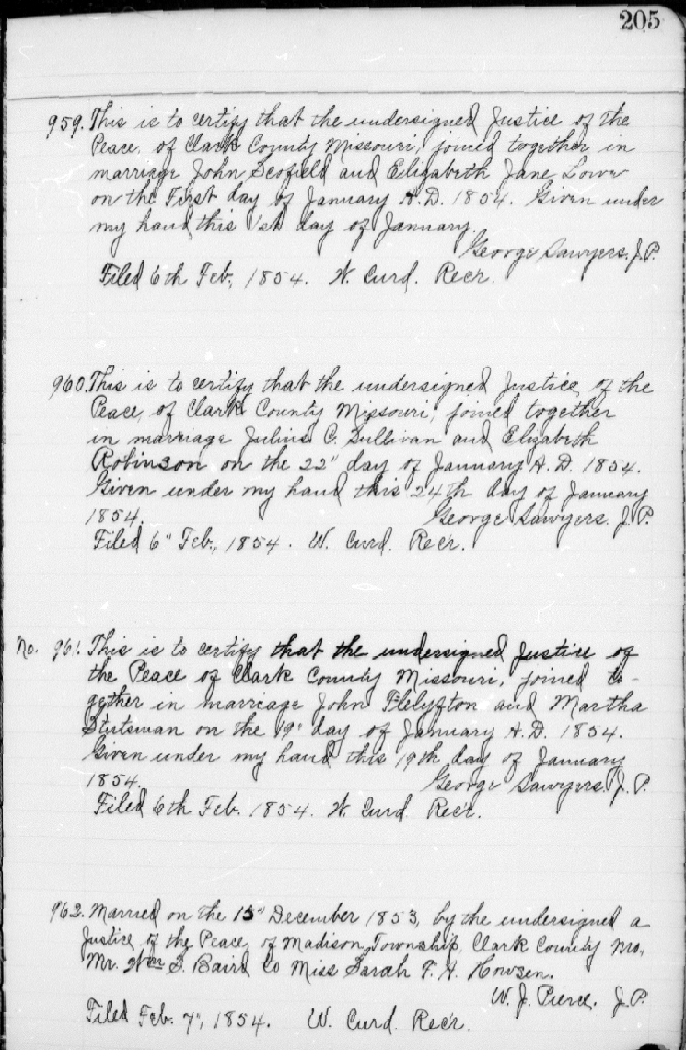 205
959. This is to certify that the undersigned Justice of the
Peace, of Clark County Missouri, joined together in
marriage John Scofield and Elizabeth Jane Lowe
on the First day of January A.D. 1854. Given under
my hand this 1st day of January.
George Sawyers. J.P.
Filed 6th Feb, 1854. W. Curd. Recr.
960. This is to certify that the undersigned Justice, of the
Peace, of Clark County Missouri, joined together
in marriage Julius C. Sullivan and Elizabeth
Robinson on the 22" day of January A.D. 1854.
Given under my hand this 24th day of January
1854. George Sawyers. J.P.
Filed 6" Feb., 1854. W. Curd. Recr.
No. 961. This is to certify that the undersigned Justice of
the Peace of Clark County Missouri, joined to-
gether in marriage John and Martha
Stutsman on the 19" day of January A.D. 1854.
Given under my hand this 19th day of January
1854. George Sawyers. J.P.
Filed 6th Feb. 1854. W. Curd. Recr.
962. Married on the 15" December 1853, by the undersigned a
Justice of the Peace, of Madison Township, Clark County Mo,
Mr. Wm S. Baird to Miss Sarah F. H. Howsen.
W. J. Pierce. J.P.
Filed Feb. 7", 1854. W. Curd. Recr.